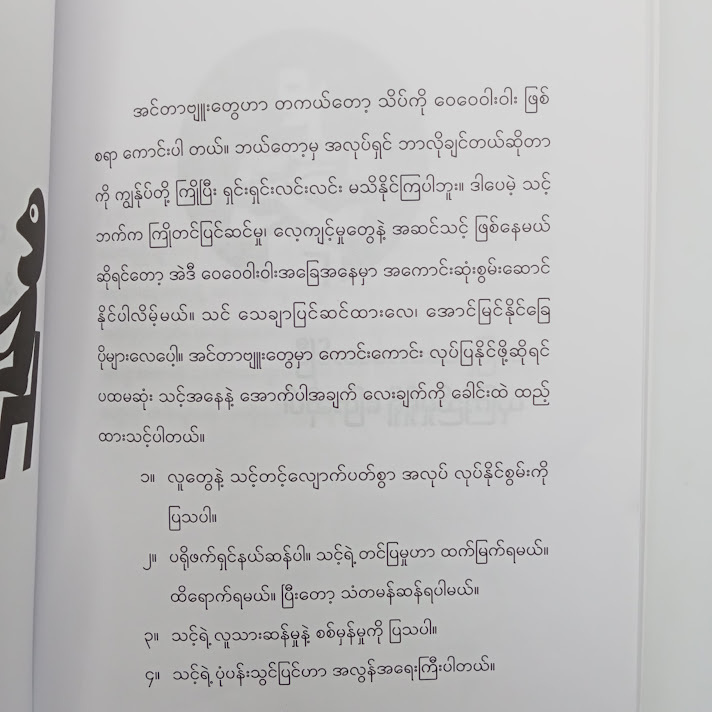 အင်တာဗျူးတွေဟာ တကယ်တော့ သိပ်ကို ဝေဝေဝါးဝါး ဖြစ်
စရာ ကောင်းပါ တယ်။ ဘယ်တော့မှ အလုပ်ရှင် ဘာလိုချင်တယ်ဆိုတာ
ကို ကျွန်ုပ်တို့ ကြိုပြီး ရှင်းရှင်းလင်းလင်း မသိနိုင်ကြပါဘူး။ ဒါပေမဲ့ သင့်
ဘက်က ကြိုတင်ပြင်ဆင်မှု၊ လေ့ကျင့်မှုတွေနဲ့ အဆင်သင့် ဖြစ်နေမယ်
ဆိုရင်တော့ အဲဒီ ဝေဝေဝါးဝါးအခြေအနေမှာ အကောင်းဆုံးစွမ်းဆောင်
နိုင်ပါလိမ့်မယ်။ သင် သေချာပြင်ဆင်ထားလေ၊ အောင်မြင်နိုင်ခြေ
ပိုများလေပေ့ါ။ အင်တာဗျူးတွေမှာ ကောင်းကောင်း လုပ်ပြနိုင်ဖို့ဆိုရင်
ပထမဆုံး သင့်အနေနဲ့ အောက်ပါအချက် လေးချက်ကို ခေါင်းထဲ ထည့်
ထားသင့်ပါတယ်။
၁။ လူတွေနဲ့ သင့်တင့်လျောက်ပတ်စွာ အလုပ် လုပ်နိုင်စွမ်းကို
ပြသပါ။
၂။ ပရိုဖက်ရှင်နယ်ဆန်ပါ။ သင့်ရဲ့ တင်ပြမှုဟာ ထက်မြက်ရမယ်။
ထိရောက်ရမယ်။ ပြီးတော့ သံတမန်ဆန်ရပါမယ်။
၃။ သင့်ရဲ့ လူသားဆန်မှုနဲ့ စစ်မှန်မှုကို ပြသပါ။
၄။ သင့်ရဲ့ ပုံပန်းသွင်ပြင်ဟာ အလွန်အရေးကြီးပါတယ်။